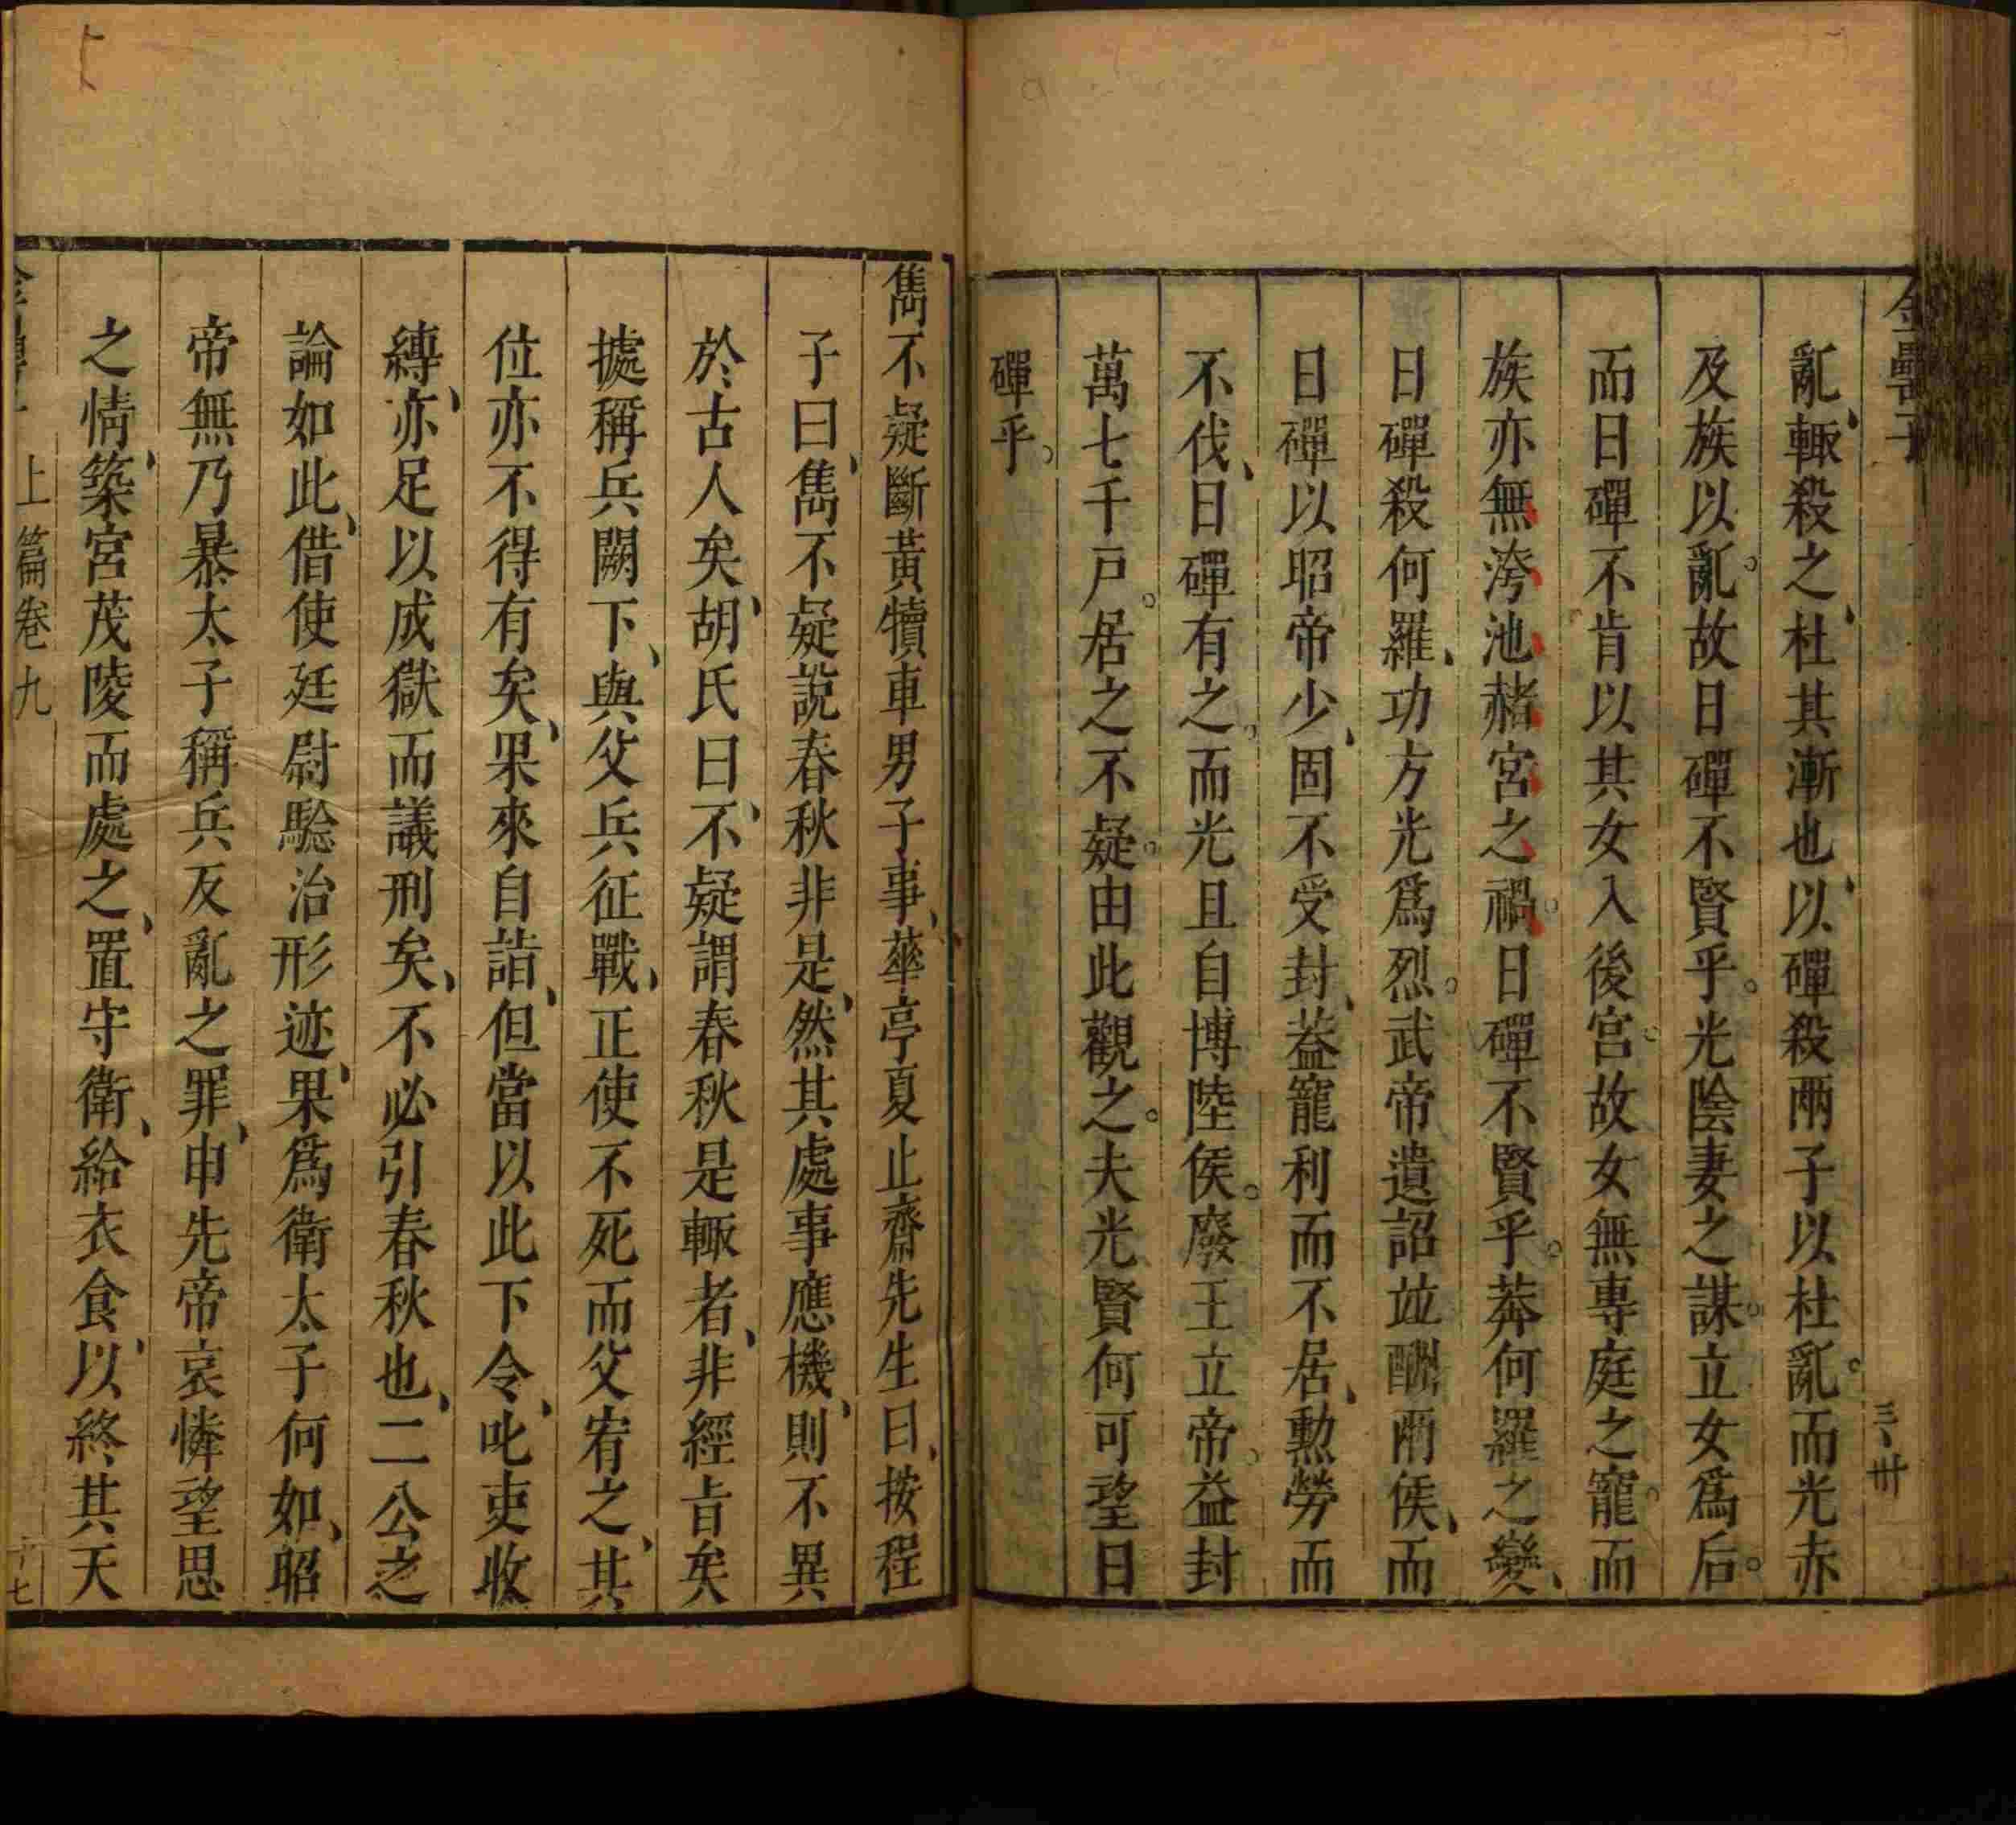 金罍子
三、卅
亂、輙殺之、杜其漸也、以磾殺兩子以杜亂。而光赤
及族以亂。故日磾不賢乎。光陰妻之謀。立女爲后。
而日磾不肯以其女入後宮。故女無專庭之寵。而
族亦無洿池赭宮之禍。日磾不賢乎。莽何羅之變、
日磾殺何羅、功方光爲烈。武帝遺詔竝酬兩侯、而
日磾以昭帝少、固不受封、葢寵利而不居、勲勞而
不伐、日磾有之。而光且自博陸侯。廢王立帝。益封
萬七千戸。居之不疑。由此觀之。夫光賢何可望日
磾乎。
雋不疑斷黃犢車男子事、華亭夏止齋先生曰、按程
子曰、雋不疑說春秋非是、然其處事應機、則不異
於古人矣、胡氏曰、不疑謂春秋是輙者、非經旨矣
據稱兵闕下、與父兵征戰、正使不死而父宥之、其
位亦不得有矣、果來自詣、但當以此下令、叱吏收
縛、亦足以成獄而議刑矣、不必引春秋也、二公之
論如此、借使廷尉驗治形迹、果爲衛太子何如、昭
帝無乃暴太子稱兵反亂之罪、申先帝哀憐望思
之情、築宮茂陵而處之、置守衛、給衣食、以終其天
上篇卷九
十七